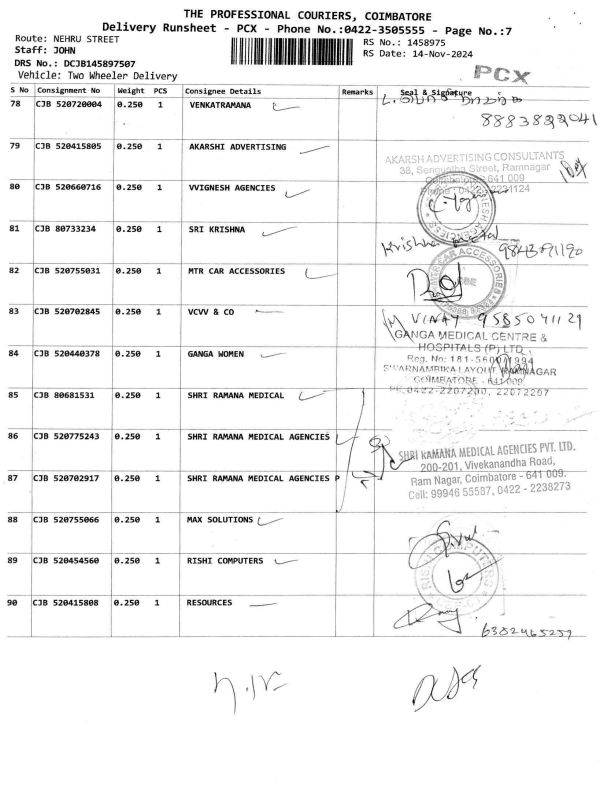 THE PROFESSIONAL COURIERS, COIMBATORE
Delivery Runsheet - PCX - Phone No.:0422-3505555 - Page No.:7
Route: NEHRU STREET
RS No.: 1458975
Staff: JOHN
RS Date: 14-Nov-2024
DRS No.: DCJB145897507
Vehicle: Two Wheeler Delivery
PCX
S No Consignment No Weight PCS Consignee Details Remarks Seal & Signature
78 CJB 520720004 0.250 1 VENKATRAMANA
79 CJB 520415805 0.250 1 AKARSHI ADVERTISING
AKARSH ADVERTISING CONSULTANTS
38, Senguptha Street, Ramnagar
Coimbatore - 641 009
80 CJB 520660716 0.250 1 VVIGNESH AGENCIES
81 CJB 80733234 0.250 1 SRI KRISHNA
Krishna
82 CJB 520755031 0.250 1 MTR CAR ACCESSORIES
CAR ACCESSORIES
83 CJB 520702845 0.250 1 VCVV & CO
VINAY 9585071129
84 CJB 520440378 0.250 1 GANGA WOMEN
GANGA MEDICAL CENTRE &
HOSPITALS (P) LTD
SWARNAMBIKA LAYOUT, RAMNAGAR
COIMBATORE - 641 009
PH:0422-2207200, 22072207
85 CJB 80681531 0.250 1 SHRI RAMANA MEDICAL
86 CJB 520775243 0.250 1 SHRI RAMANA MEDICAL AGENCIES
87 CJB 520702917 0.250 1 SHRI RAMANA MEDICAL AGENCIES P
SHRI RAMANA MEDICAL AGENCIES PVT. LTD.
200-201, Vivekanandha Road,
Ram Nagar, Coimbatore - 641 009.
Cell: 99946 55587, 0422 - 2238273
88 CJB 520755066 0.250 1 MAX SOLUTIONS
89 CJB 520454560 0.250 1 RISHI COMPUTERS
RISHI COMPUTERS
90 CJB 520415808 0.250 1 RESOURCES
6382465257